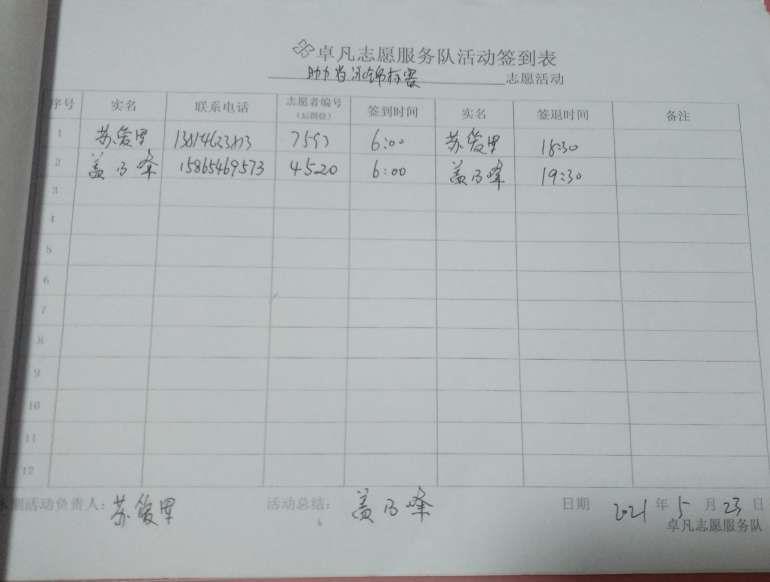 卓凡志愿服务队活动签到表
助力省泳锦标赛 志愿活动
序号 实名 联系电话 志愿者编号(后四位) 签到时间 实名 签退时间 备注
1 苏 6:00 苏 18:30
2 盖乃峰 15865469573 4520 6:00 盖乃峰 19:30
3
4
5
6
7
8
9
10
11
12
活动负责人: 苏 活动总结: 盖乃峰 日期 2021 年 5 月 23 日
卓凡志愿服务队